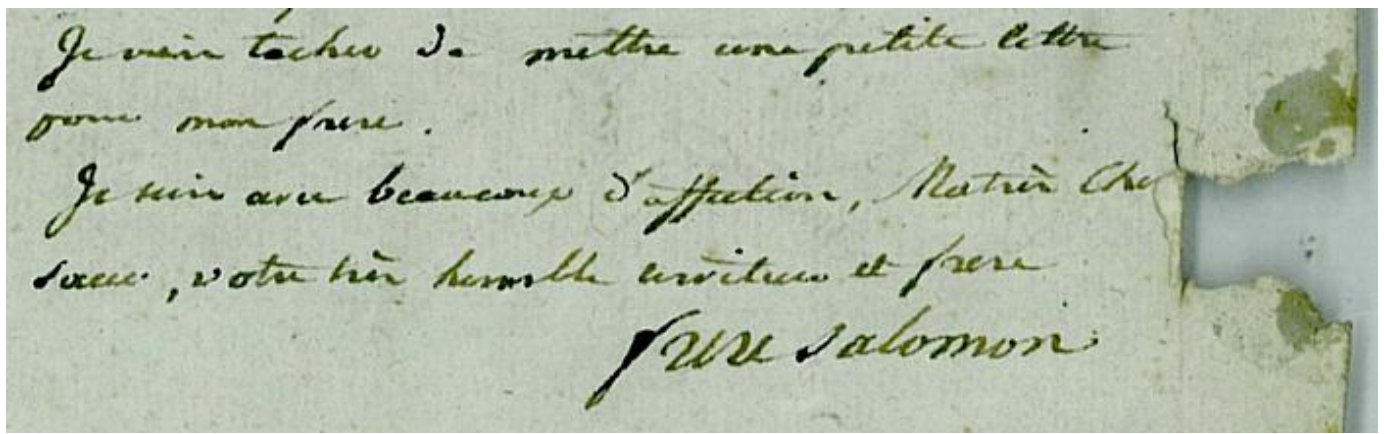 Je vais tacher de mettre une petite lettre
pour mon frere.
Je suis avec beaucoup d'affection, Ma très Che
soeur, votre très humble serviteur et frere
frere Salomon